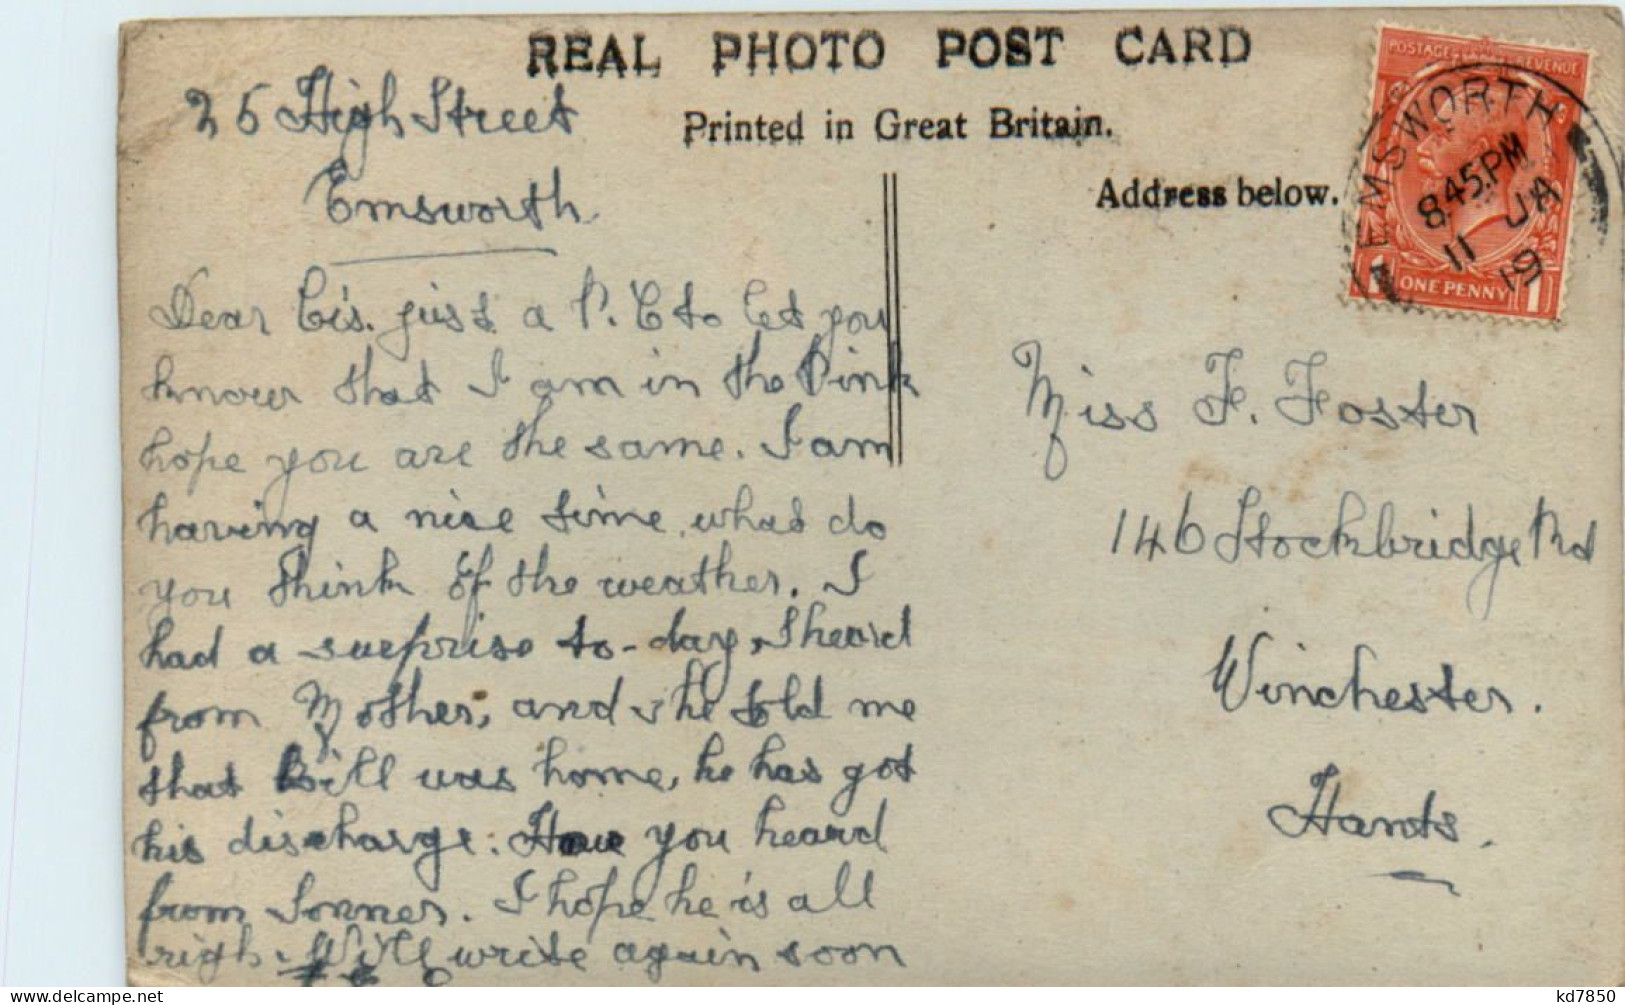 REAL PHOTO POST CARD
Printed in Great Britain.
Address below.
POSTAGE REVENUE
ONE PENNY
1 1
EMSWORTH
8.45PM
11 JA
19
25 High Street
Emsworth
Dear Cis. just a P.C to let you
know that I am in the Pink
hope you are the same. I am
having a nice time, what do
you think of the weather. I
had a surprise to-day, I heard
from Mother, and she told me
that Bill was home, he has got
his discharge. Have you heard
from . I hope he is all
righ. Will write again soon
Miss F. Foster
146 Stockbridge Rd
Winchester.
Hants.
kd7850